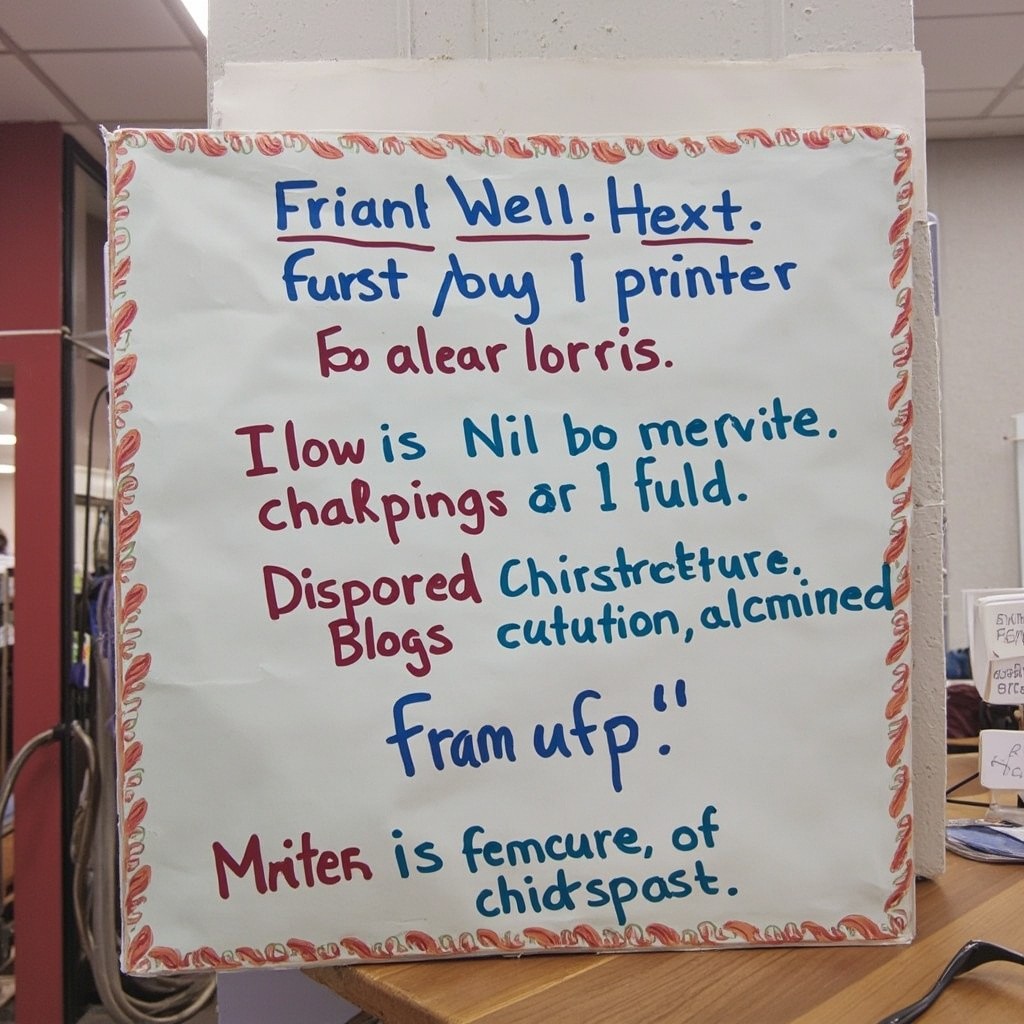 Friant Well. Hext.
furst /buy 1 printer
Eo alear lorris.
I low is Nil bo mervite.
chaRpings or 1 fuld.
Dispored Chirstrctture.
Blogs cutution, alcmined
Fram ufp."
Mriten is femcure, of
chidrspast.